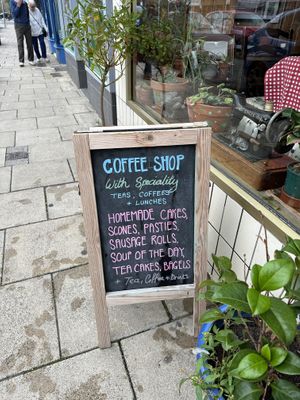 COFFEE SHOP
With Speciality
TEAS, COFFEES
+ LUNCHES
HOMEMADE CAKES,
SCONES, PASTIES,
SAUSAGE ROLLS,
SOUP OF THE DAY,
TEA CAKES, BAGELS
+ Tea, Coffee +